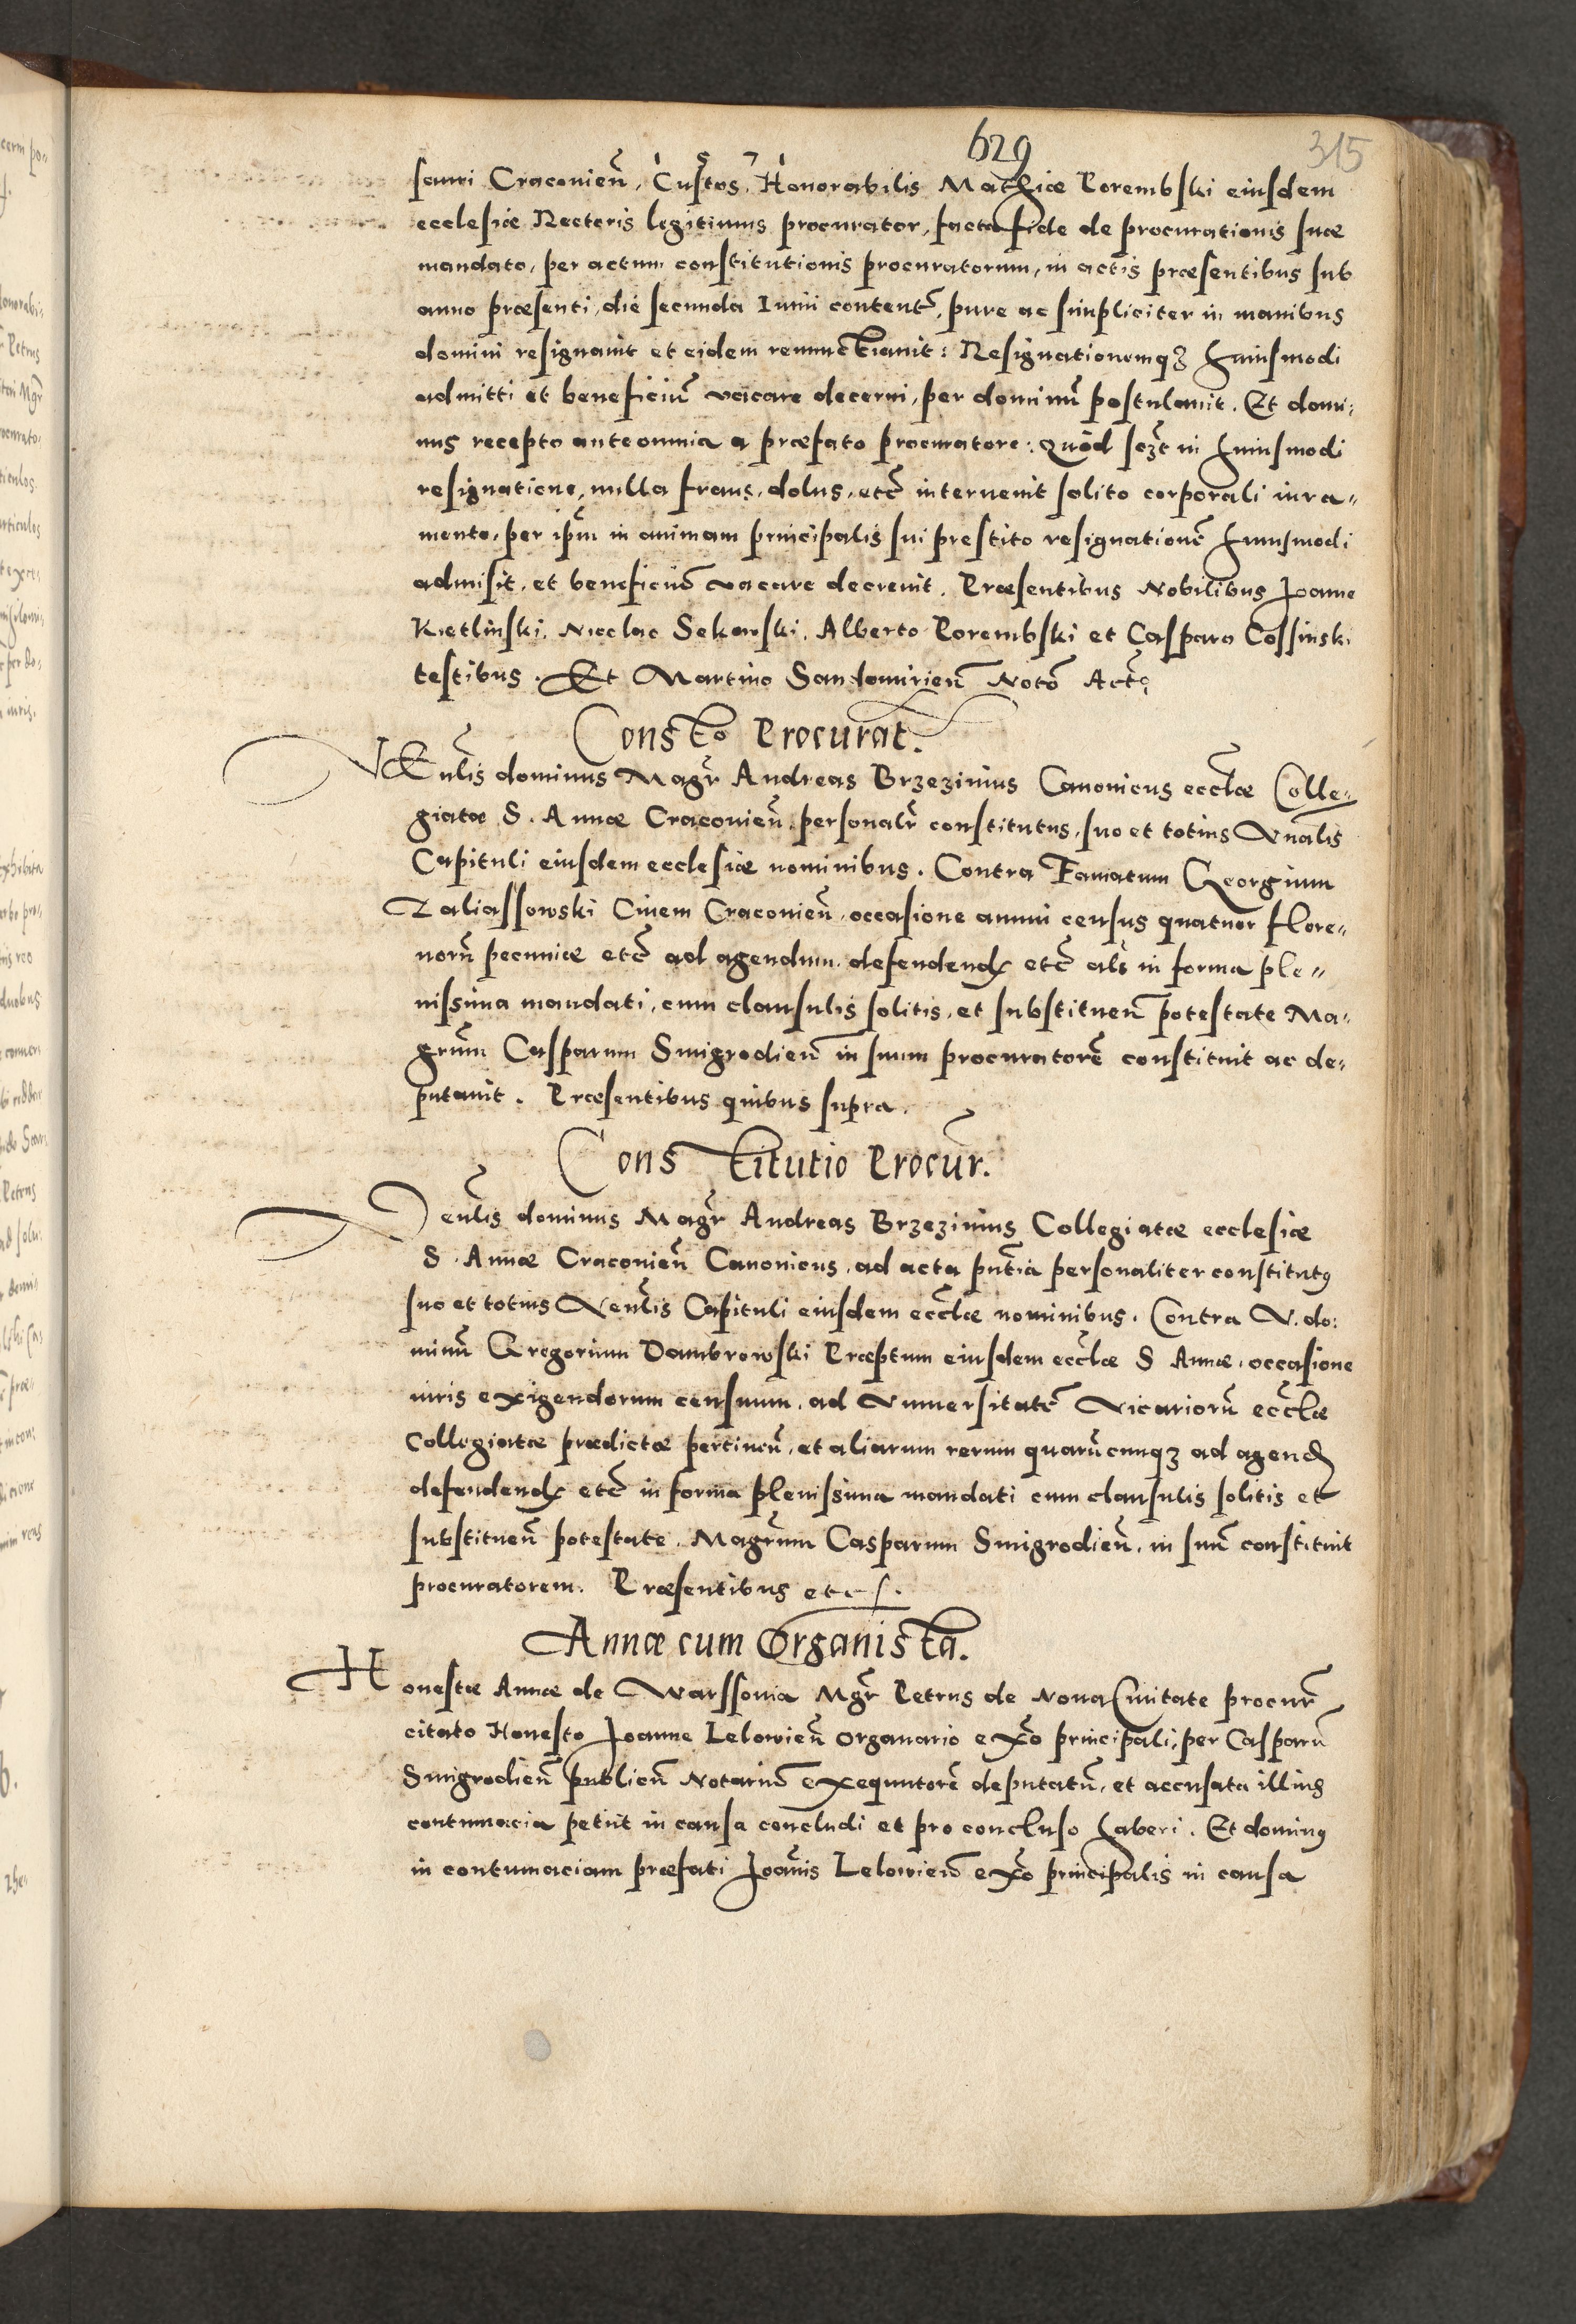 629
315
sanri Craconień, Custos, Honorabilis Mathiæ Porembski eiusdem
ecclesiæ Rectoris legitimus procurator, facta fide de procurationis suæ
mandato, per actum constitutionis procuratorum, in actis præsentibus sub
anno præsenti, die secunda Iunii content̃, pure ac simpliciter in manibus
domini resignauit et eidem renunctiauit: Resignationemq₃ huiusmodi
admitti et beneficiũ vacare decerni, per dominũ postulauit. Et domi:
nus recepto ante omnia a præfato procuratore: Quòd sczt in huiusmodi
resignatione, nulla fraus, dolus, etc̃ interuenit solito corporali iura-
mento, per ip̃m in animam principalis sui prestito resignationẽ huiusmodi
admisit, et beneficiũ vacare decreuit. Præsentibus Nobilibus Joanne
Kietlinski, Nicolao Sekowski, Alberto Porembski et Casparo Cossinski
testibus. Et Martino Sandomirień Notõ Act
Consto Procurat.
VEnl̃is dominus Magr̃ Andreas Brzezinius Canonicus eccl̃æ Colle-
giatæ S. Annæ Craconień, personalr̃ constitutus, suo et totius Vnal̃is
Capituli eiusdem ecclesiæ nominibus. Contra Famatum Georgium
Zaliassowski Ciuem Craconień, occasione annui census quatuor flore-
norũ pecuniæ etc̃ ad agendum, defendend etc̃ al̃s in forma ple-
nissima mandati, cum clausulis solitis, et substituen̄ potestate Ma-
grũm Casparum Smigrodień in suum procuratorẽ constituit ac de-
putauit. Præsentibus quibus supra.
Constitutio Procur̃.
Venl̃is dominus Magr̃ Andreas Brzezinius Collegiatæ ecclesiæ
S. Annæ Craconień Canonicus, ad acta pñtia personaliter constitutꝯ
suo et totius Venl̃is Capituli eiusdem eccl̃æ nominibus. Contra V. do:
minũ Gregorium Dambrowski Præptum eiusdem eccl̃æ S Annæ, occasione
iuris exigendorum censuum, ad Vniuersitatẽ Vicariorũ eccl̃æ
Collegiatæ prædictæ pertineñ, et aliarum rerum quarũcunq₃ ad agend
defendend etc̃ in forma plenissima mandati cum clausulis solitis et
substitueñ potestate. Magrũm Casparum Smigrodień, in suũ constituit
procuratorem. Præsentibus etc
Annæ cum Organista.
Honestæ Annæ de Warssouia Mgr̃ Petrus de Noua Ciuitate procur̃
citato Honesto Joanne Lelowień Organario exõ principali, per Casparũ
Smigrodień publicũ Notariũ exequutorẽ deputatũ, et accusata illius
contumacia petiit in causa concludi et pro concluso haberi. Et dominꝯ
in contumaciam præfati Joañis Lelowień exõ principalis in causa